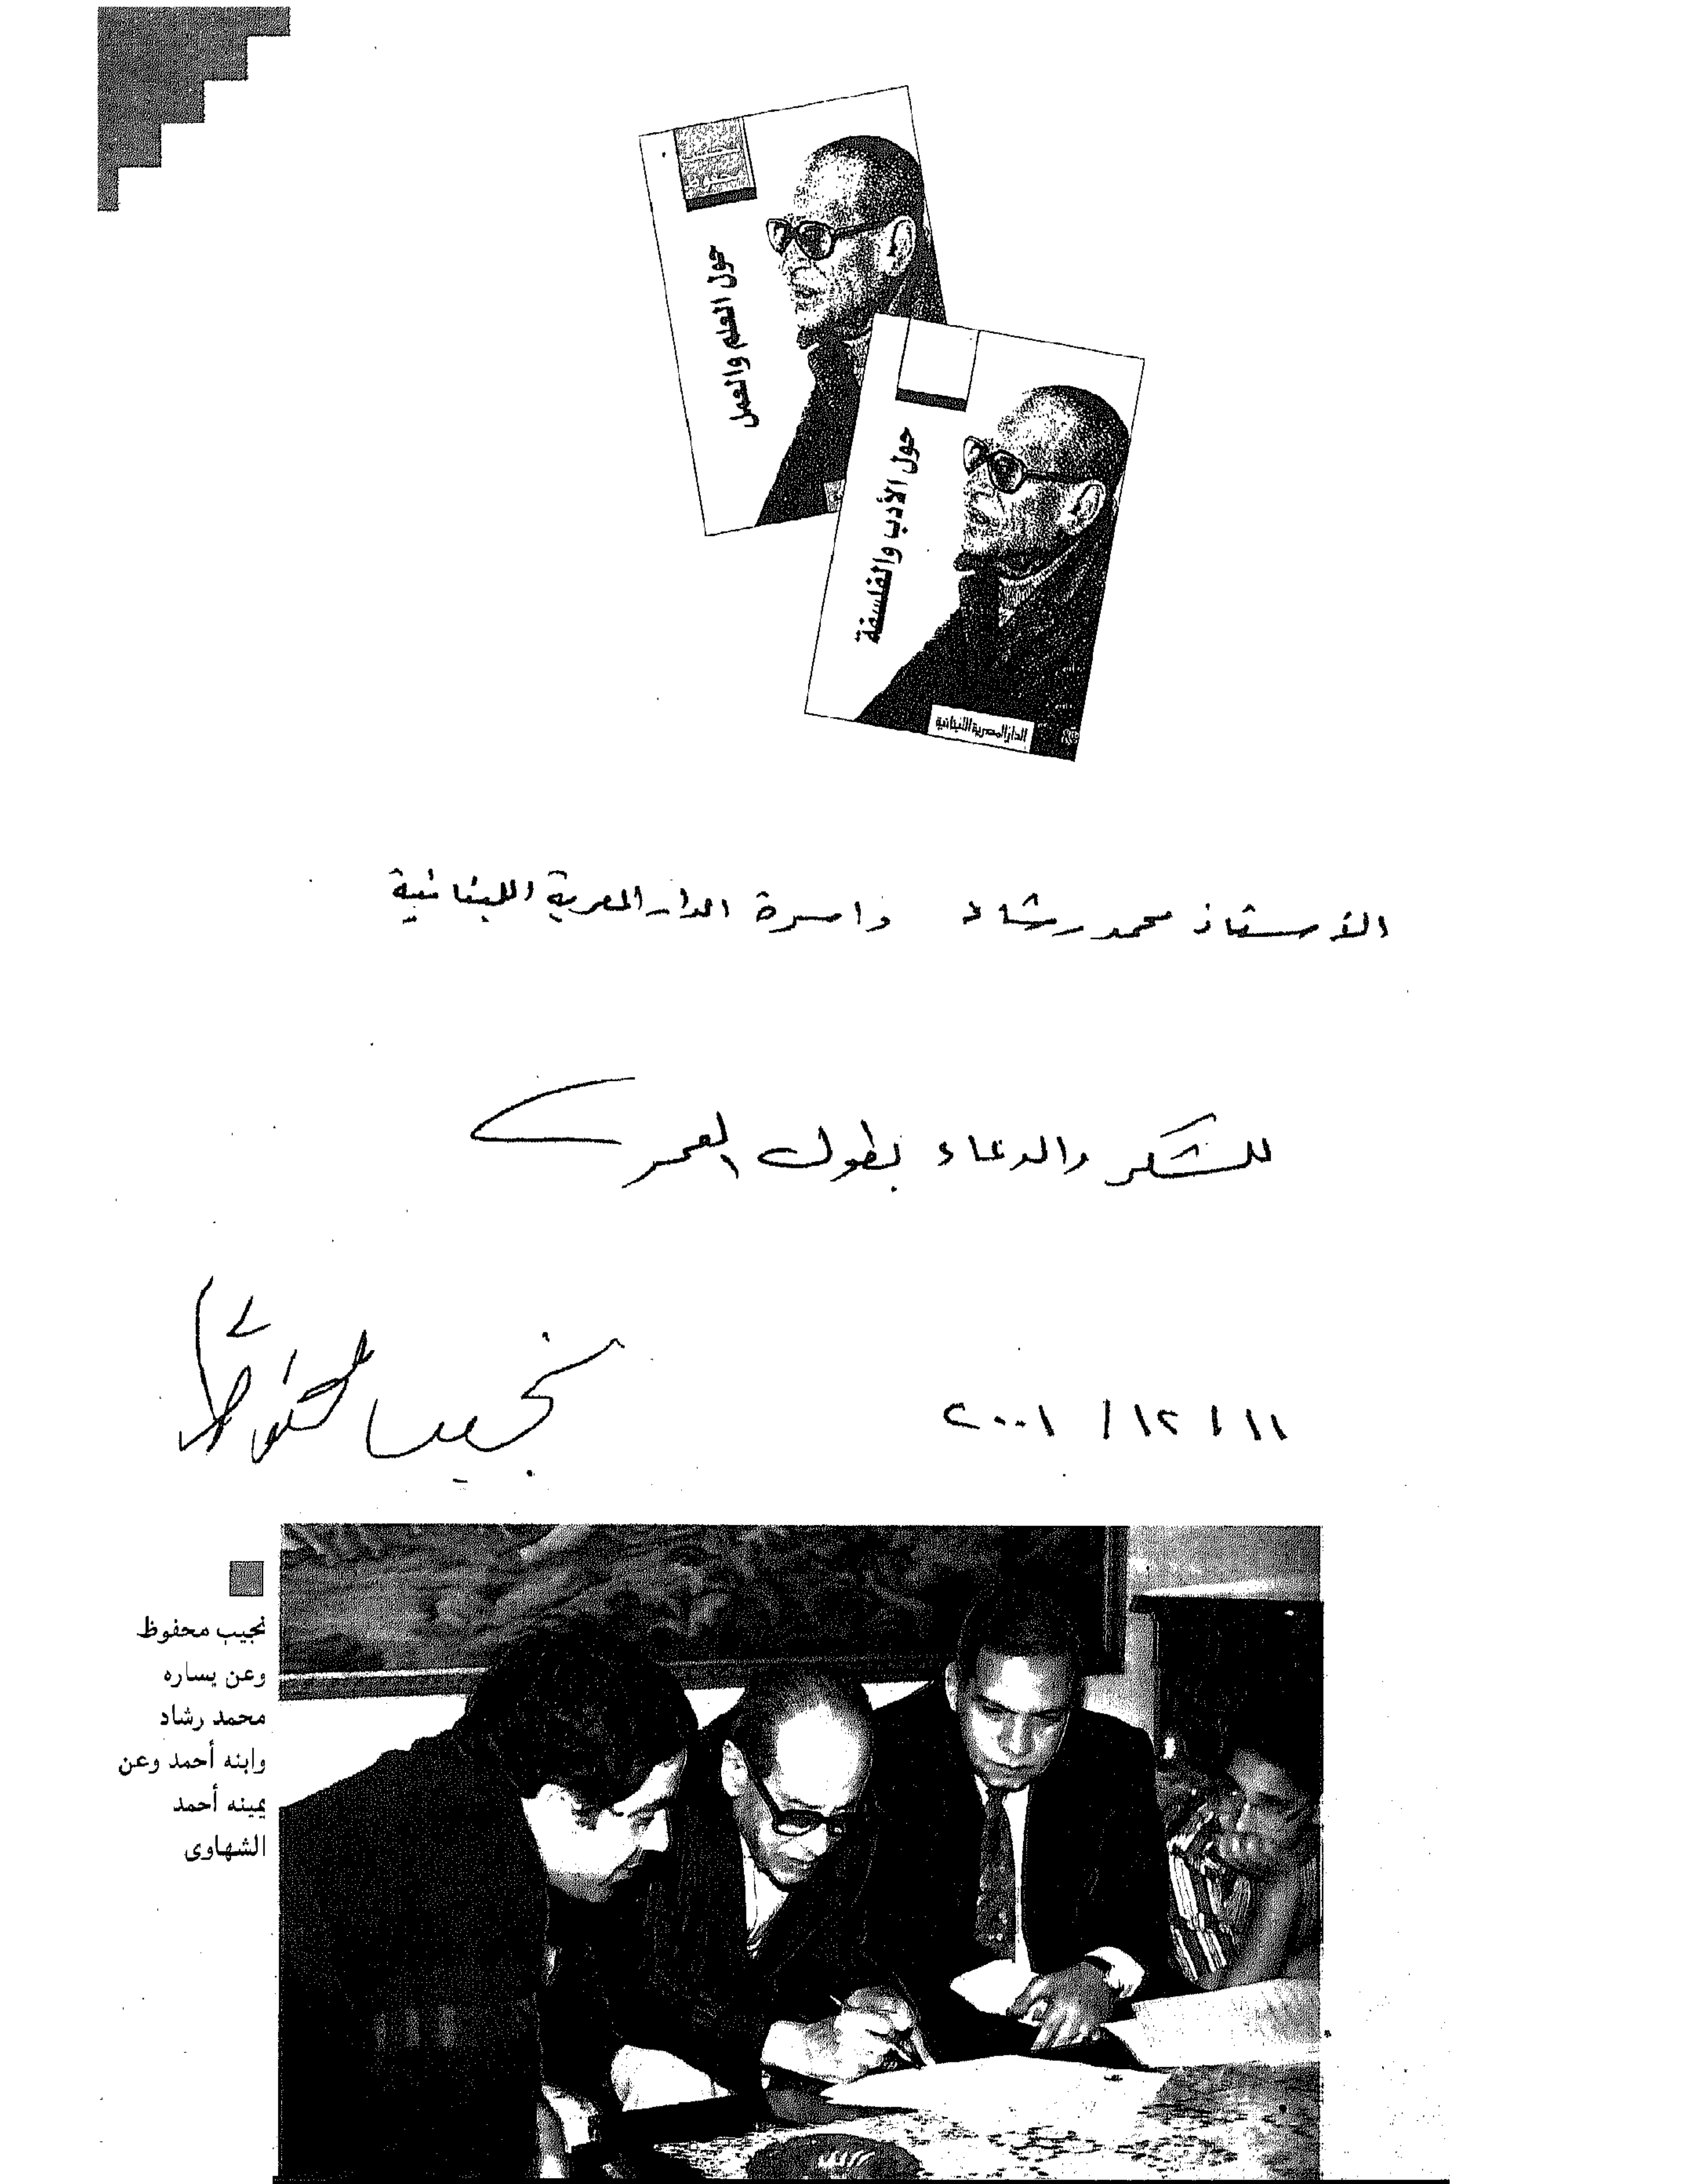 حول العلم والعمل
حول الأدب والفلسفة
الدار المصرية اللبنانية
الأستاذ محمد رشاد واسرة الدار المصرية اللبنانية
للشكر والدعاء بطول العمر
نجيب محفوظ
١١ / ١٢ / ٢٠٠١
نجيب محفوظ
وعن يساره
محمد رشاد
وابنه أحمد وعن
يمينه أحمد
الشهاوى